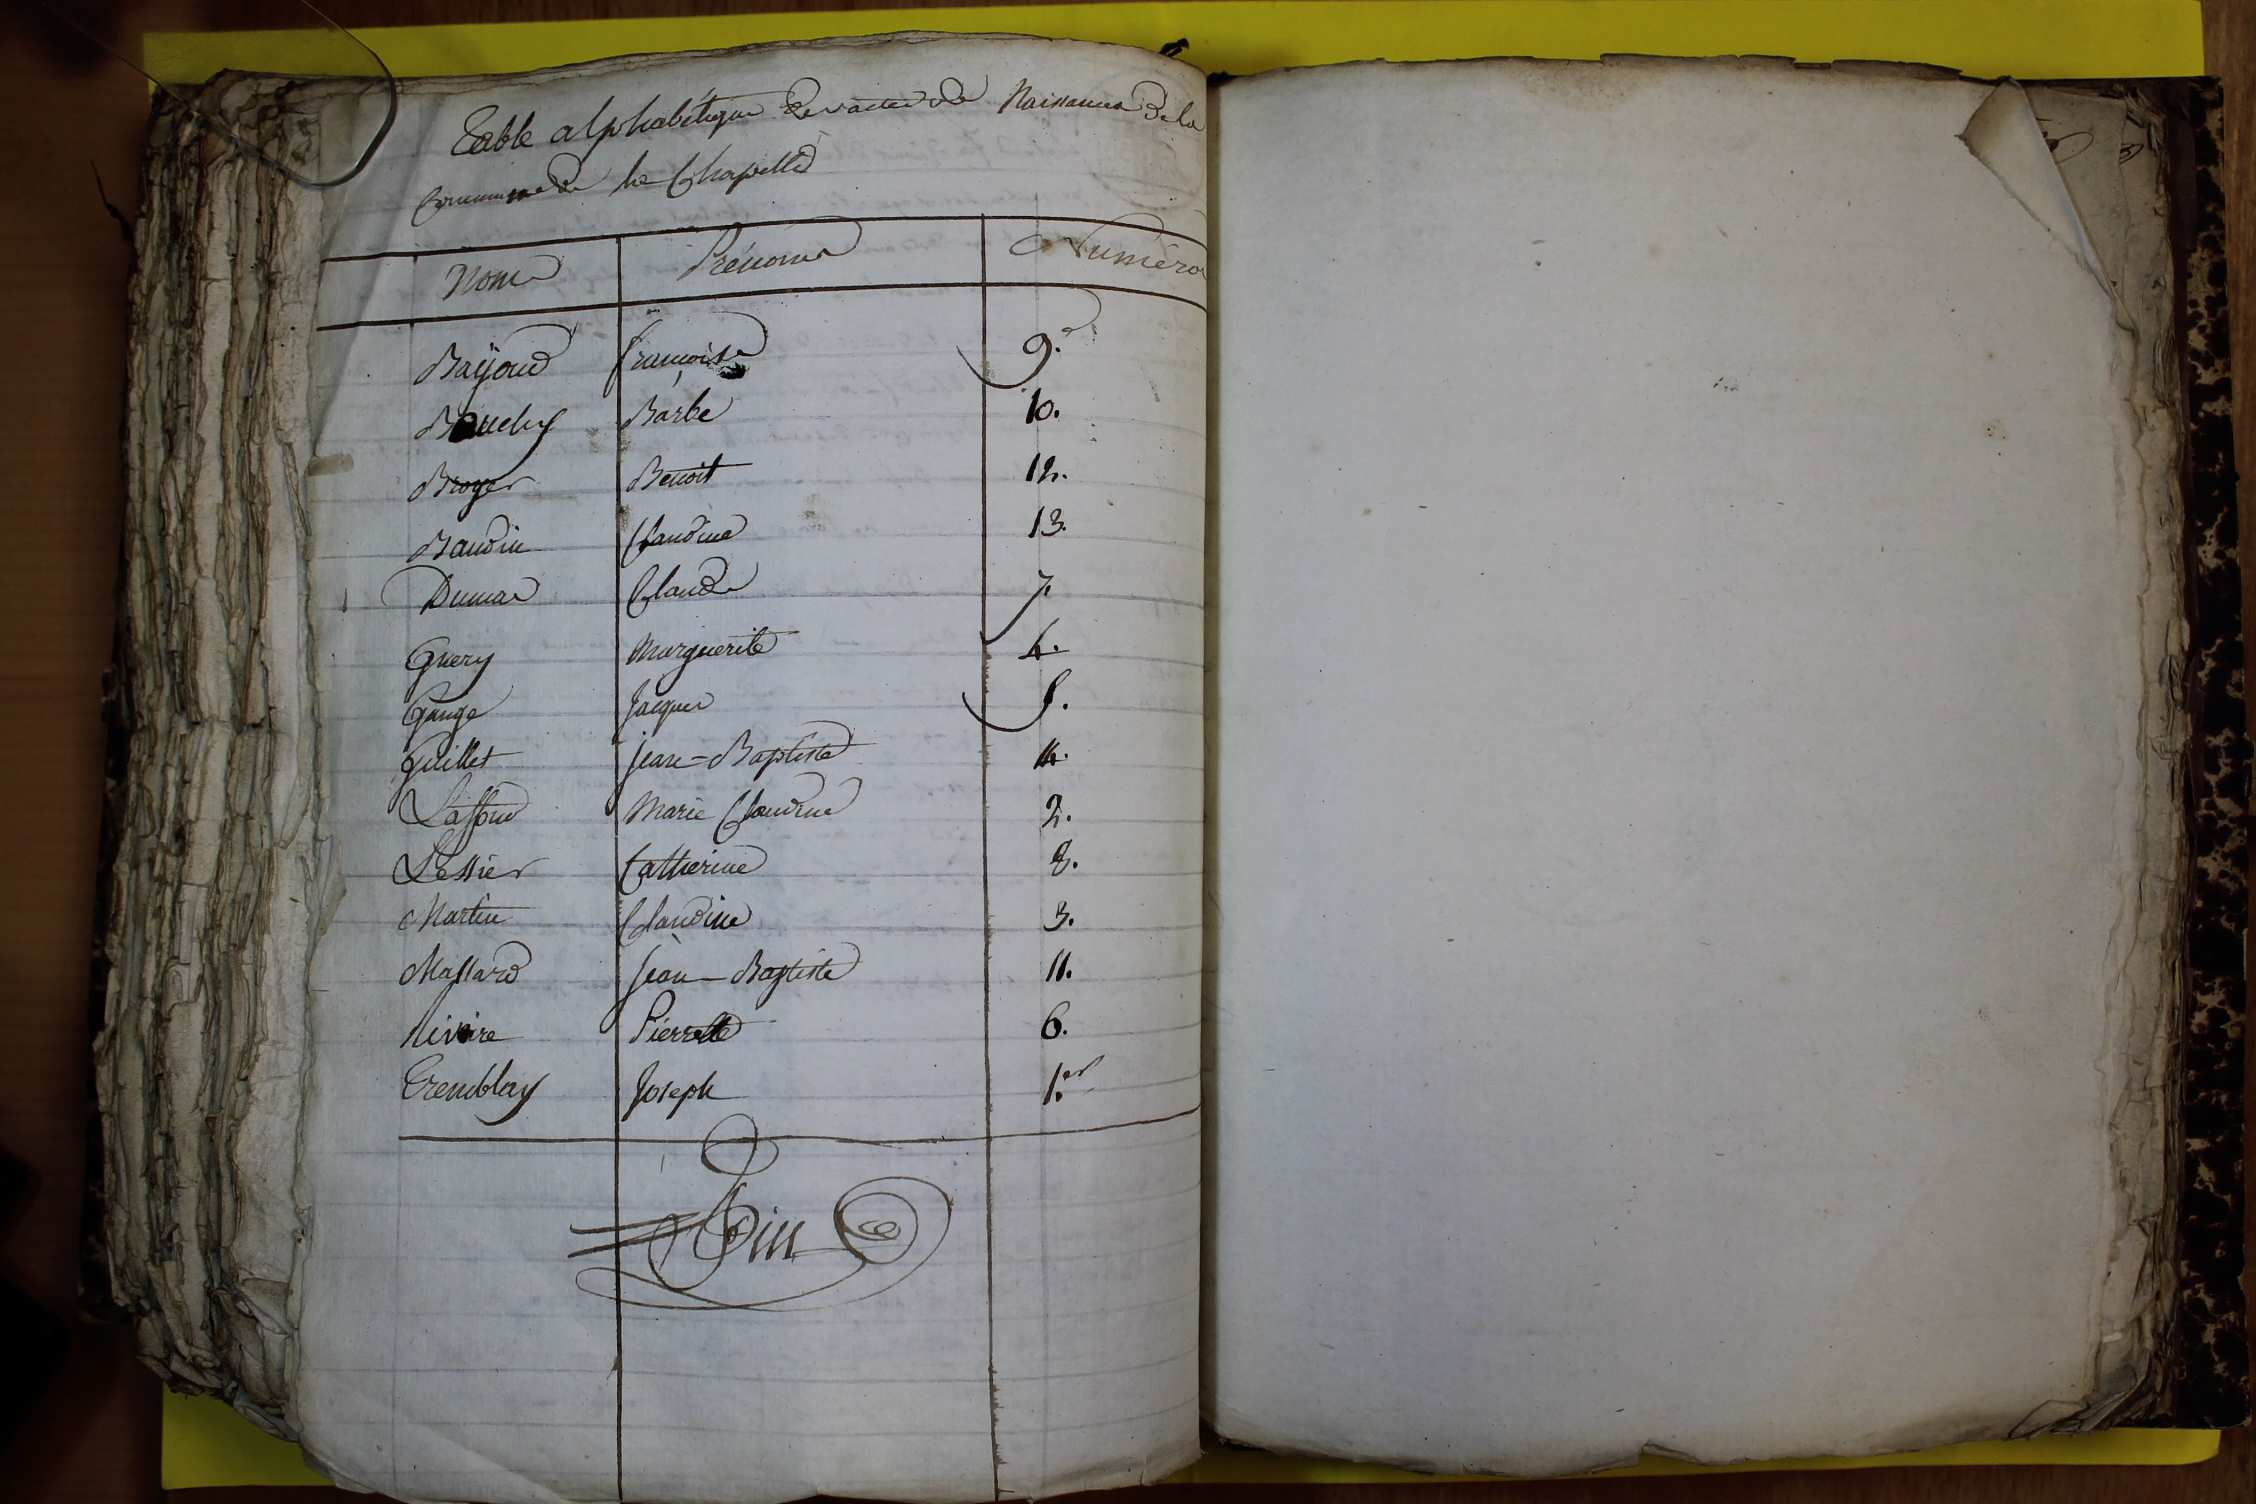 Table alphabétique des actes de Naissances De la
Commune de la Chapelle
Noms Prénoms Numéros
Bayoud françoise 9.
Bouchy Barbe 10.
Broyer Benoit 12.
Baudin Claudine 13.
Dumas Claude 7.
Guery Marguerite 4.
Gauge Jacques 5.
Guillet jean-Baptiste 14.
Laffond Marie Claudine 2.
Lessier Catherine 8.
Martin Claudine 3.
Massard Jean-Baptiste 11.
Rivoire Pierrette 6.
Tremblay Joseph 1.er